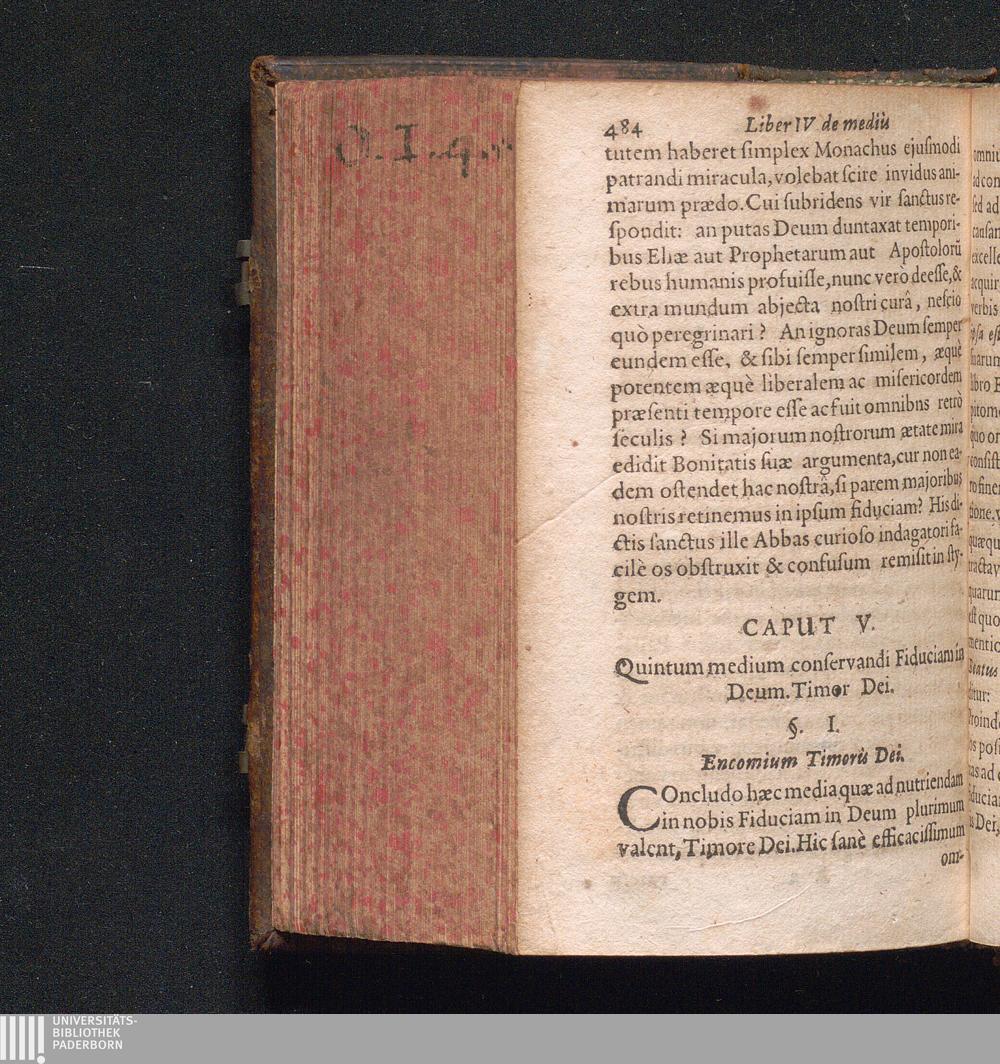 O. I. 9.
484 Liber IV de mediis
tutem haberet ſimplex Monachus ejuſmodi
patrandi miracula, volebat ſcire invidus ani-
marum prædo. Cui ſubridens vir ſanctus re-
ſpondit: an putas Deum duntaxat tempori-
bus Eliæ aut Prophetarum aut Apoſtolorū
rebus humanis profuiſſe, nunc verò deeſſe, &
extra mundum abjecta noſtri curâ, neſcio
quò peregrinari? An ignoras Deum ſemper
eundem eſſe, & ſibi ſemper ſimilem, æquè
potentem æquè liberalem ac miſericordem
præſenti tempore eſſe ac fuit omnibns retrò
ſeculis? Si majorum noſtrorum ætate mira
edidit Bonitatis ſuæ argumenta, cur non ea-
dem oſtendet hac noſtrâ, ſi parem majoribus
noſtris retinemus in ipſum fiduciam? His di-
ctis ſanctus ille Abbas curioſo indagatori fa-
cilè os obſtruxit & confuſum remiſit in ſty-
gem.
CAPUT V.
Quintum medium conſervandi Fiduciam in
Deum. Timor Dei.
§. I.
Encomium Timoris Dei.
COncludo hæc media quæ ad nutriendam
in nobis Fiduciam in Deum plurimum
valent, Timore Dei. Hic ſanè efficaciſſimum
om-
UNIVERSITÄTS-
BIBLIOTHEK
PADERBORN